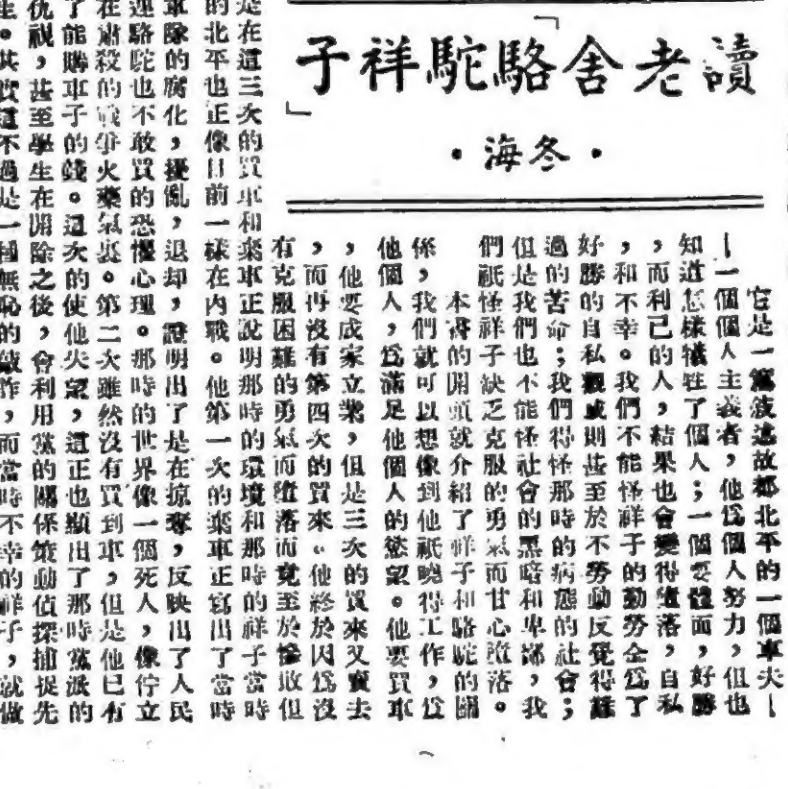 讀老舍「駱駝祥子」
・冬海・
它是一篇敍述故都北平的一個車夫—
—一個個人主義者,他爲個人努力,但也
知道怎樣犧牲了個人;一個要體面,好勝
,而利己的人,結果也會變得墮落,自私
,和不幸。我們不能怪祥子的勤勞全爲了
好勝的自私觀或則甚至於不勞動反覺得難
過的苦命;我們得怪那時的病態的社會;
但是我們也不能怪社會的黑暗和卑鄙,我
們祇怪祥子缺乏克服的勇氣而甘心墮落。
本書的開頭就介紹了祥子和駱駝的關
係,我們就可以想像到他祇曉得工作,爲
他個人,爲滿足他個人的慾望。他要買車
,他要成家立業,但是三次的買來又賣去
,而再沒有第四次的買來。他終於因爲沒
有克服困難的勇氣而墮落而竟至於慘敗但
是在這三次的買車和棄車正說明那時的環境和那時的祥子當時
的北平也正像目前一樣在內戰。他第一次的棄車正寫出了當時
軍隊的腐化,擾亂,退却,證明出了是在掠奪,反映出了人民
連駱駝也不敢買的恐懼心理。那時的世界像一個死人,像佇立
在肅殺的戰爭火藥氣裏。第二次雖然沒有買到車,但是他已有
了能購車子的錢。這次的使他失望,這正也顯出了那時黨派的
仇視,甚至學生在開除之後,會利用黨的關係策動偵探捕捉先
生。其實這不過是一種無恥的敲詐,而當時不幸的祥子,就做